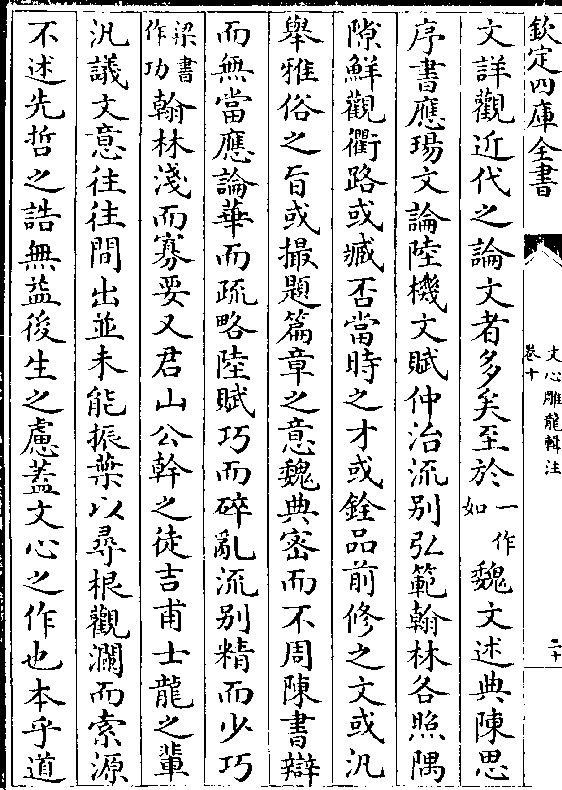 欽定四庫全書
文心雕龍輯注
卷十
二十
文詳觀近代之論文者多矣至於一作如魏文述典陳思
序書應瑒文論陸機文賦仲治流别弘範翰林各照隅
隙鮮觀衢路或臧否當時之才或銓品前修之文或汎
舉雅俗之旨或撮題篇章之意魏典密而不周陳書辯
而無當應論華而疏略陸賦巧而碎亂流别精而少巧
梁書作功翰林淺而寡要又君山公幹之徒吉甫士龍之輩
汎議文意往往間出並未能振葉以尋根觀瀾而索源
不述先哲之誥無益後生之慮蓋文心之作也本乎道